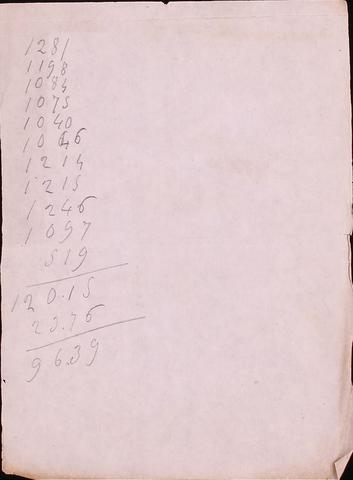 1281
1198
1084
1075
1040
1046
1214
1215
1246
1097
519
120.15
23.76
96.39